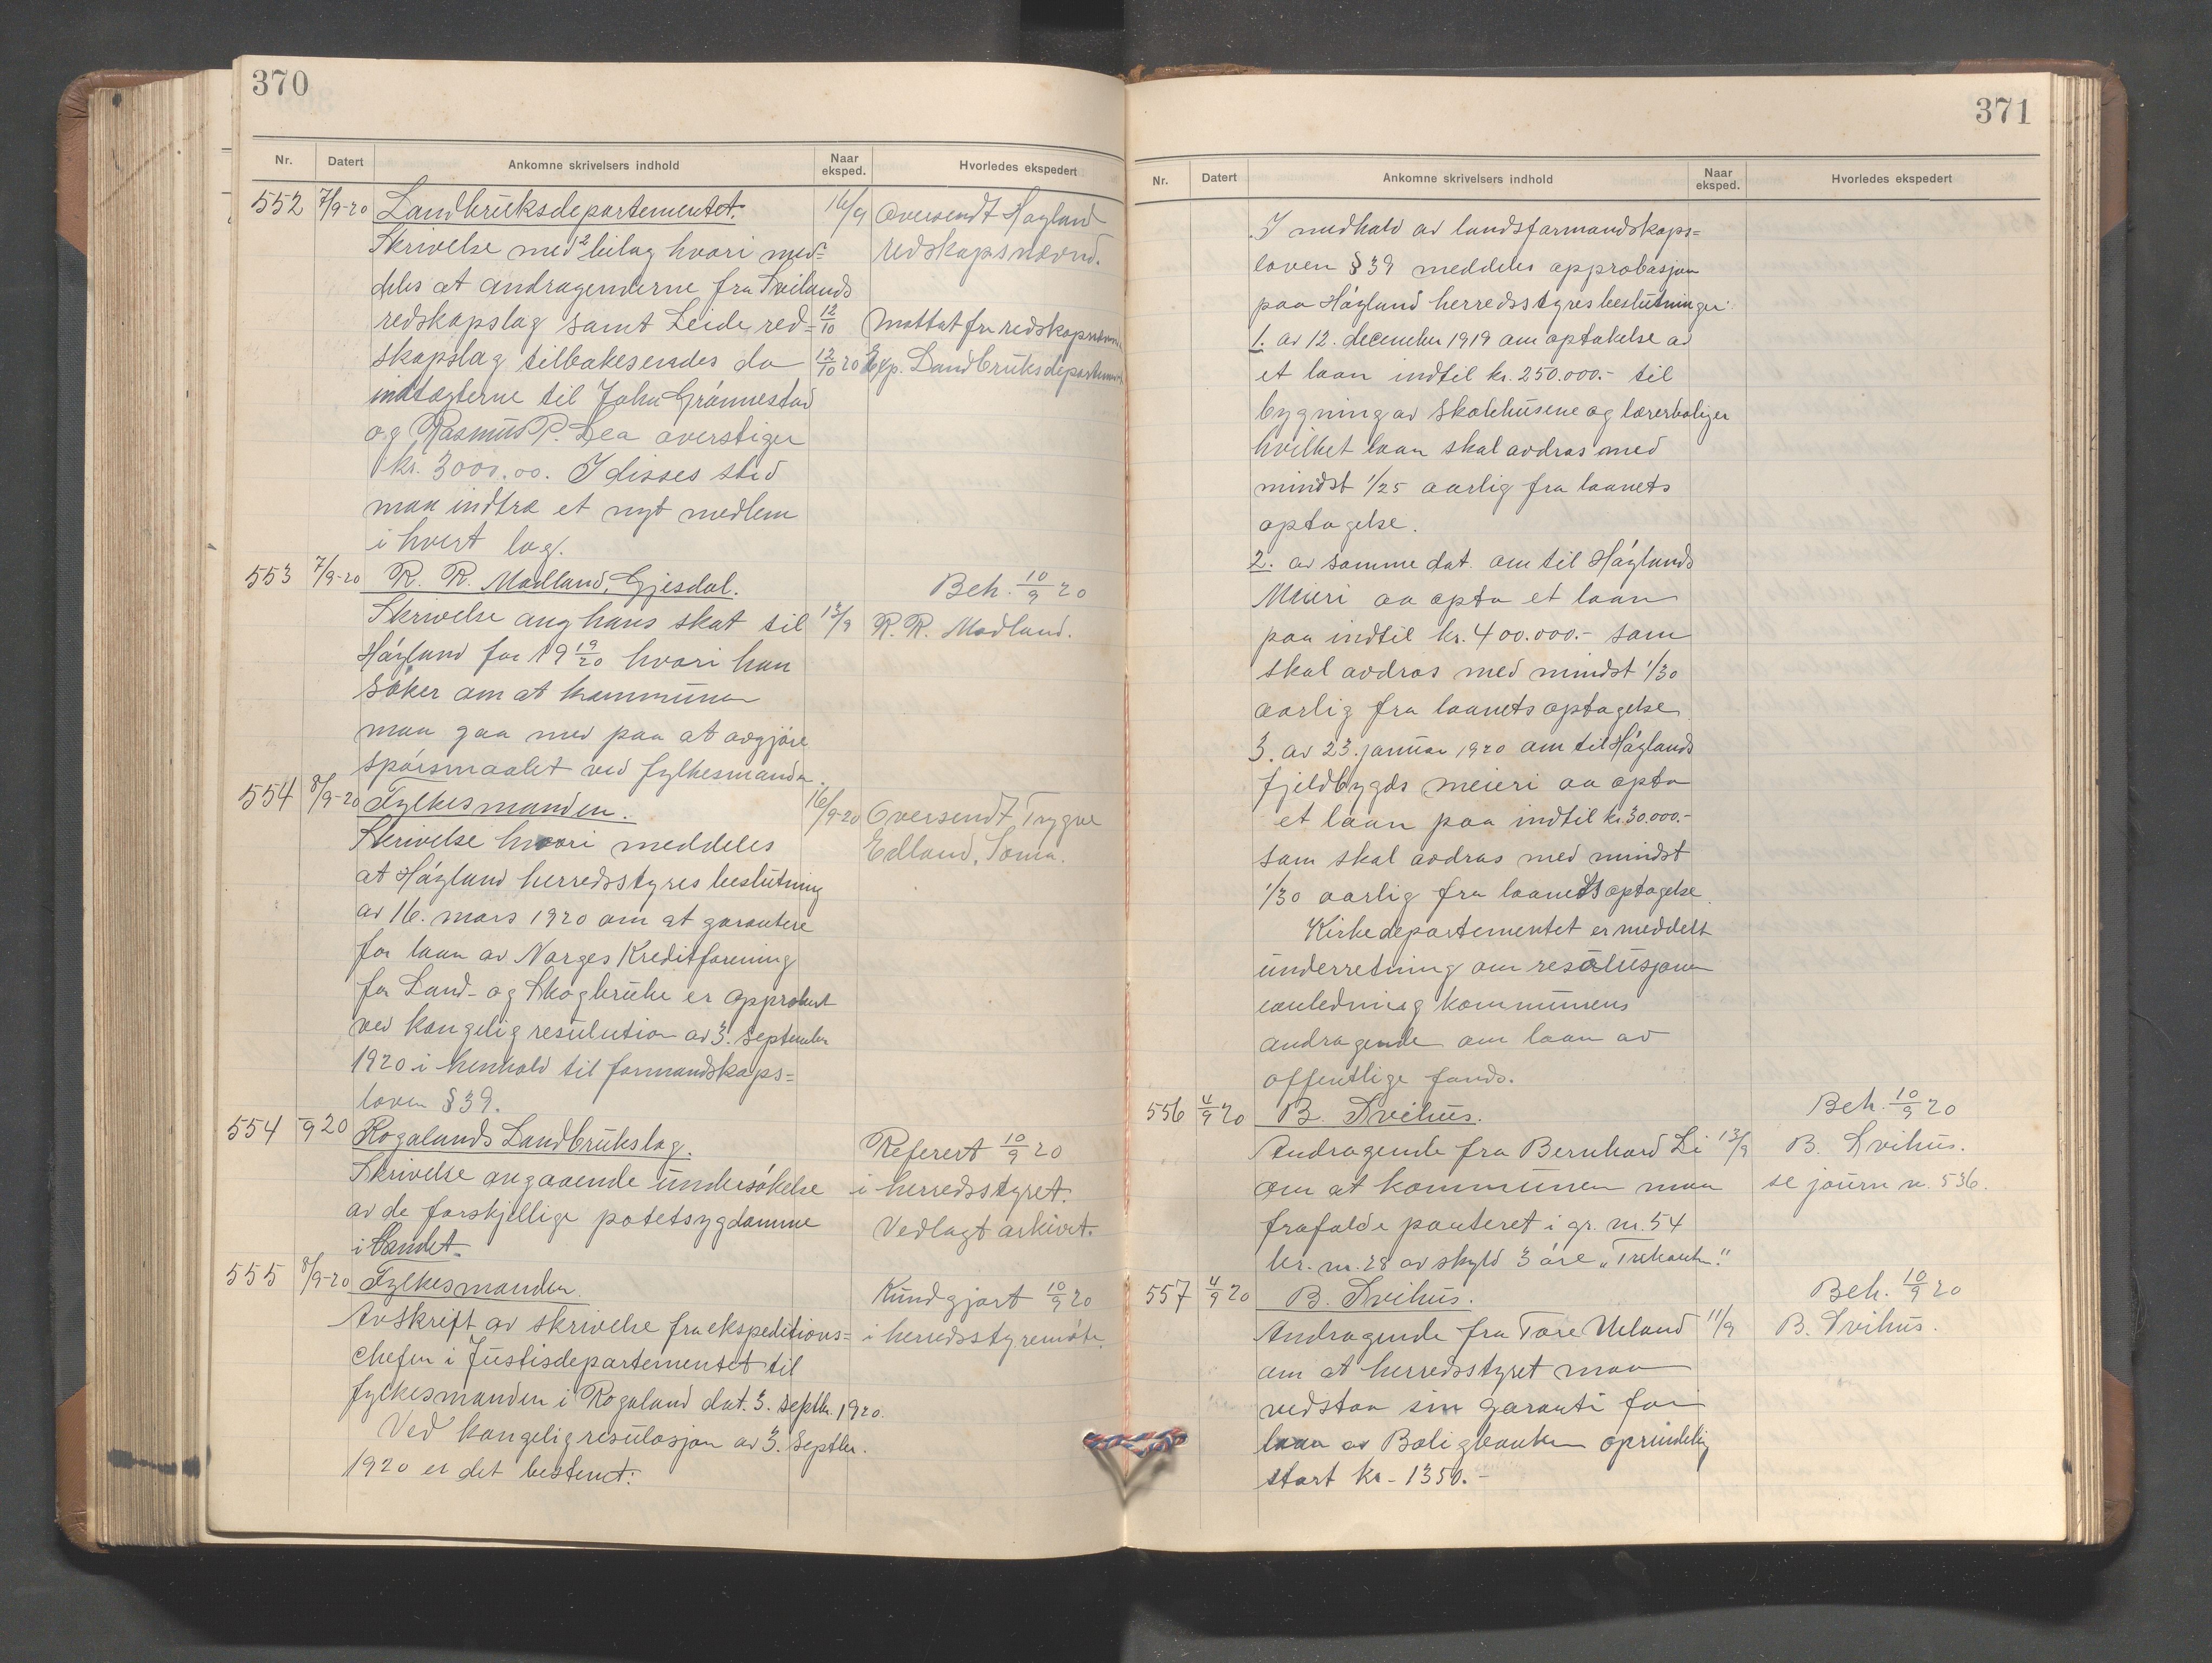 370
Nr. Datert Ankomne skrivelsers indhold Naar eksped. Hvorledes ekspedert
552 7/9-20 Landbruksdepartementet. 16/9 Oversendt Høyland
Skrivelse med 2 bilag hvori med= redskapsnevnd.
deles at andragenderne fra Sviland
redskapslag samt Leide red= 12/10 Mottat fra redskapsnevnd
skapslag tilbakesendes da 12/10 20 Exp. Landbruksdepartement
indtægterne til John Grønnestad
og Rasmus P. Lea overstiger
kr. 3000.00. I disses sted
maa indtræ et nyt medlem
i hvert lag.
553 7/9-20 R. R. Madland, Gjesdal. Beh. 10/9 20
Skrivelse ang hans skat til 13/9 R. R. Madland.
Høyland for 19 19/20 hvori han
søker om at kommunen
maa gaa med paa at avgjøre
spørsmaalet ved fylkesmanden.
554 8/9-20 Fylkesmanden. 16/9-20 Oversendt Trygve
Skrivelse hvori meddeles Edland, Soma.
at Høyland herredsstyres beslutning
av 16. mars 1920 om at garantere
for laan av Norges Kreditforening
for Land- og Skogbruk er approbert
ved kongelig resulution av 3. september
1920 i henhold til formandskaps=
loven § 39.
554 /9 20 Rogalands Landbrukslag. Referert 10/9 20
Skrivelse angaaende undersøkelse i herredsstyret.
av de forskjellige potetsygdomme Vedlagt arkivet.
i landet.
555 8/9-20 Fylkesmanden. Kundgjort 10/9 20
Avskrift av skrivelse fra ekspeditions= i herredsstyremøte.
chefen i Justisdepartementet til
fylkesmanden i Rogaland dat. 3. septbr. 1920.
Ved kongelig resulosjon av 3. septbr.
1920 er det bestemt:
371
Nr. Datert Ankomne skrivelsers indhold Naar eksped. Hvorledes ekspedert
I medhald av landsformandskaps=
loven § 39 meddeles approbasjon
paa Høyland herredsstyres beslutninger:
1. av 12. december 1919 om optakelse av
et laan indtil kr. 250.000.- til
bygning av skolehusene og lærerboliger
hvilket laan skal avdras med
mindst 1/25 aarlig fra laanets
optagelse.
2. av samme dat. om til Høylands
Meieri aa opta et laan
paa indtil kr. 400.000.- som
skal avdras med mindst 1/30
aarlig fra laanets optagelse.
3. av 23. januar 1920 om til Høylands
fjeldbygds meieri aa opta
et laan paa indtil kr. 30.000.-
som skal avdras med mindst
1/30 aarlig fra laanets optagelse.
Kirkedepartementet er meddelt
underretning om resolusjonen
ianledning kommunens
andragende om laan av
offentlige fonds.
556 4/9 20 B. Svihus. Beh. 10/9 20
Andragende fra Bernhard Li 13/9 B. Svihus.
om at kommunen maa se journ n. 536.
frafalde panteret i gr. nr. 54
br. nr. 28 av skyld 3 øre "Trekanten"
557 4/9 20 B. Svihus. Beh. 10/9 20
Andragende fra Tore Ueland 11/9 B. Svihus.
om at herredsstyret maa
vedstaa sin garanti for
laan av Boligbanken oprindelig
stort kr - 1350.-